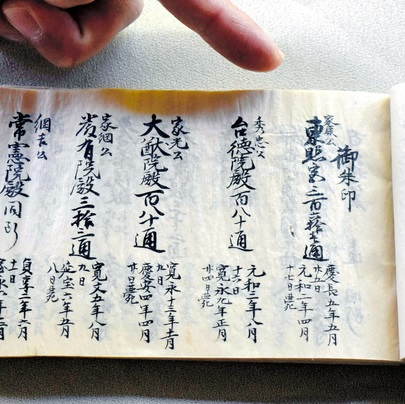 御朱印
家康公
東照宮三百
慶長五年五月
廿五日
元和二年四月
十七日薨
秀忠公
台徳院殿百八十通
元和三年八月
十六日
寛永九年正月
廿四日薨
家光公
大猷院殿百八十通
寛永十三年十一月
九日
慶安四年四月
廿日薨
家綱公
厳有院殿三拾二通
寛文五年八月
九日
延宝六年五月
八日薨
綱吉公
常憲院殿同断
貞享二年六月
十一日